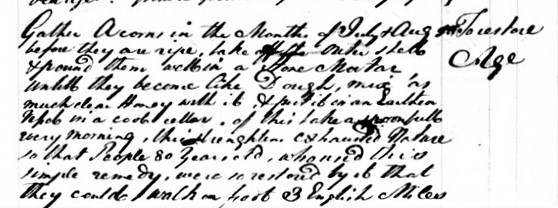 Gather Acorns in the Month of July & Aug st
To restore
Age
before they are ripe, take off the Outer shell
& pound them well in a Stone Mortar
untill they become like Dough, mix as
much clear Honey with it & put it in an earthen
in a cool cellar, of this take a spoonfull
every morning, this strengthens Exhausted Nature
so that People 80 Years old, who used this
simple remedy, were so restored by it that
they could walk on foot 3 English Miles